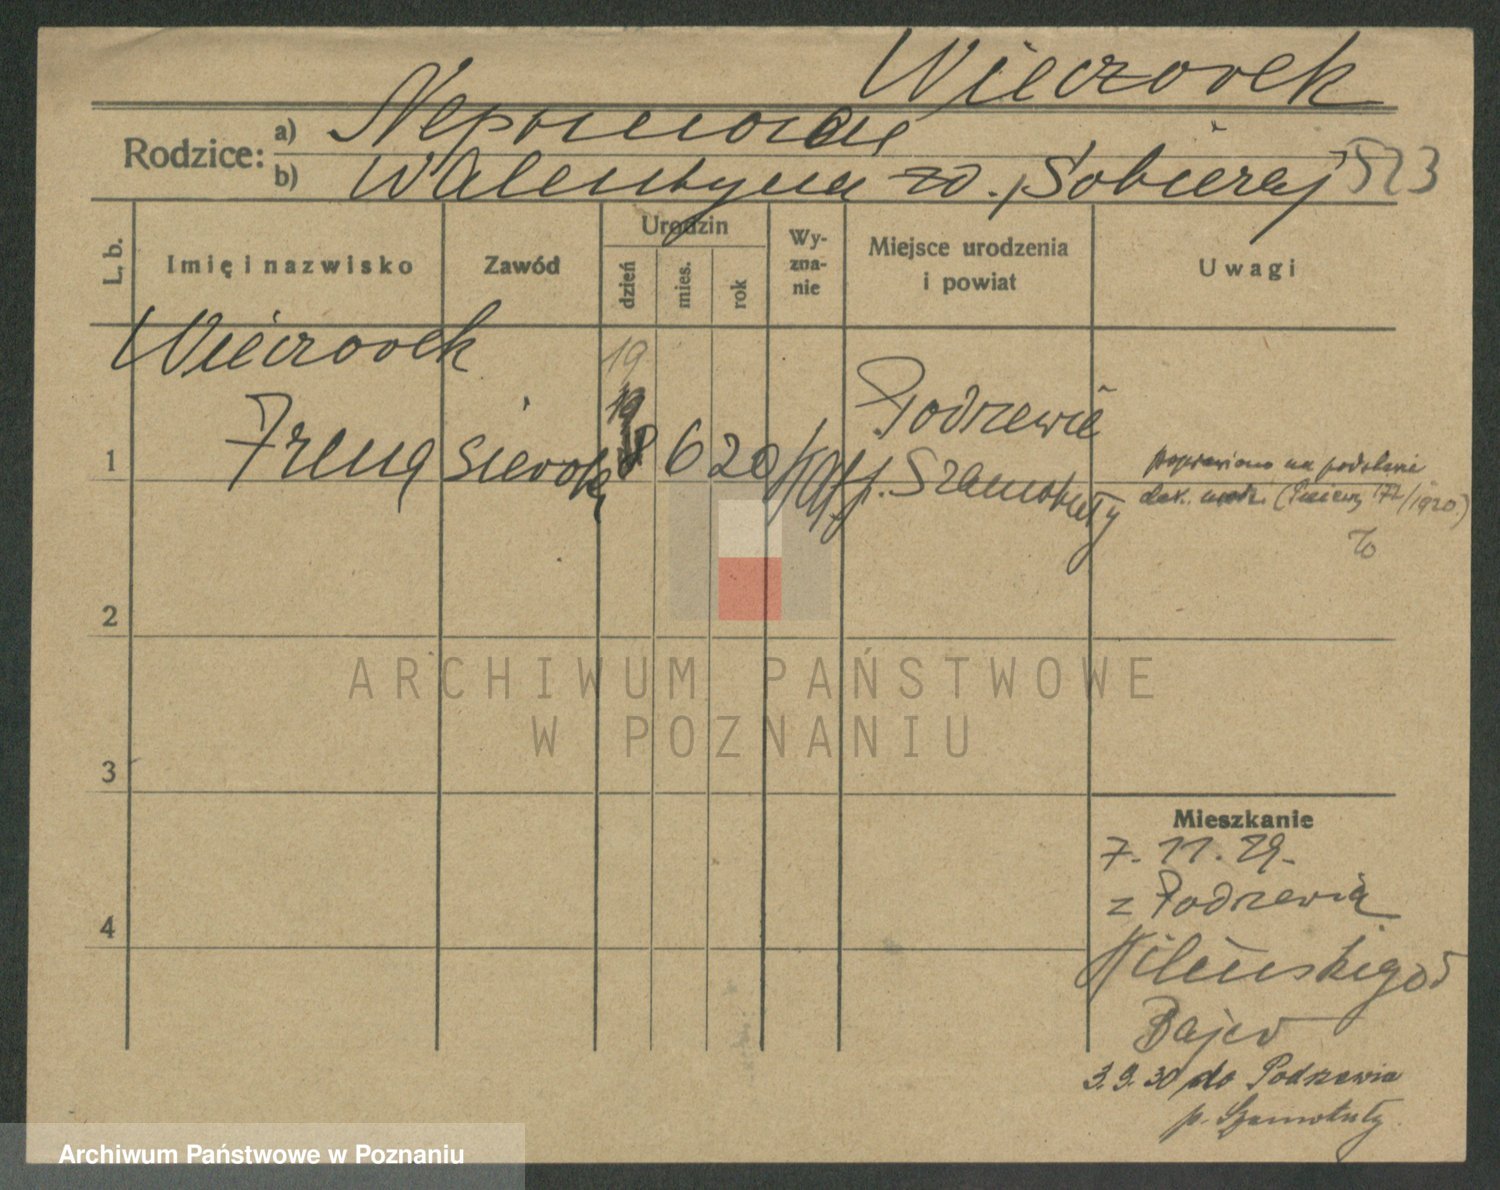 Wieczorek
Rodzice: a) Nepomocen
b) Walentyna zd. Sobieraj 523
L. b.
Imię i nazwisko
Zawód
Urodzin
dzień
mies.
rok
Wy-
zna-
nie
Miejsce urodzenia
i powiat
Uwagi
Wieczorek
19
1 Irena 8 6 20 kat. Podrzewie
p. Szamotuły
poprawiono na podstawie
dok. urodz. /1920.)
2
3
4
Mieszkanie
7. 11. 29.
z Podrzewia
Kilińskiego 5
Bajer
3. 9. 30 do Podrzewia
p. Szamotuły
ARCHIWUM PAŃSTWOWE
W POZNANIU
Archiwum Państwowe w Poznaniu